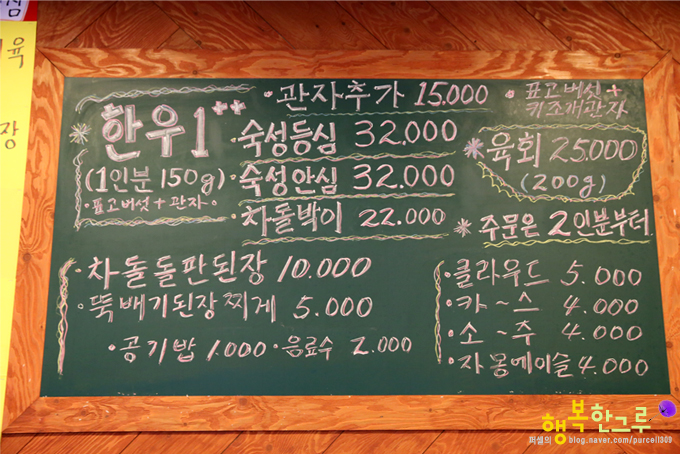 심
육
장
한우1++
(1인분 150g)
·표고버섯+관자·
·관자추가 15.000
·숙성등심 32.000
·숙성안심 32.000
·차돌박이 22.000
·표고버섯+
키조개관자
*육회 25.000
(200g)
*주문은 2인분부터.
·차돌돌판된장 10.000
·뚝배기된장찌게 5.000
·공기밥 1.000 ·음료수 2.000
·클라우드 5.000
·카~스 4.000
·소~주 4.000
·자몽에이슬 4.000
행복한그루
퍼셀의 blog.naver.com/purcell309